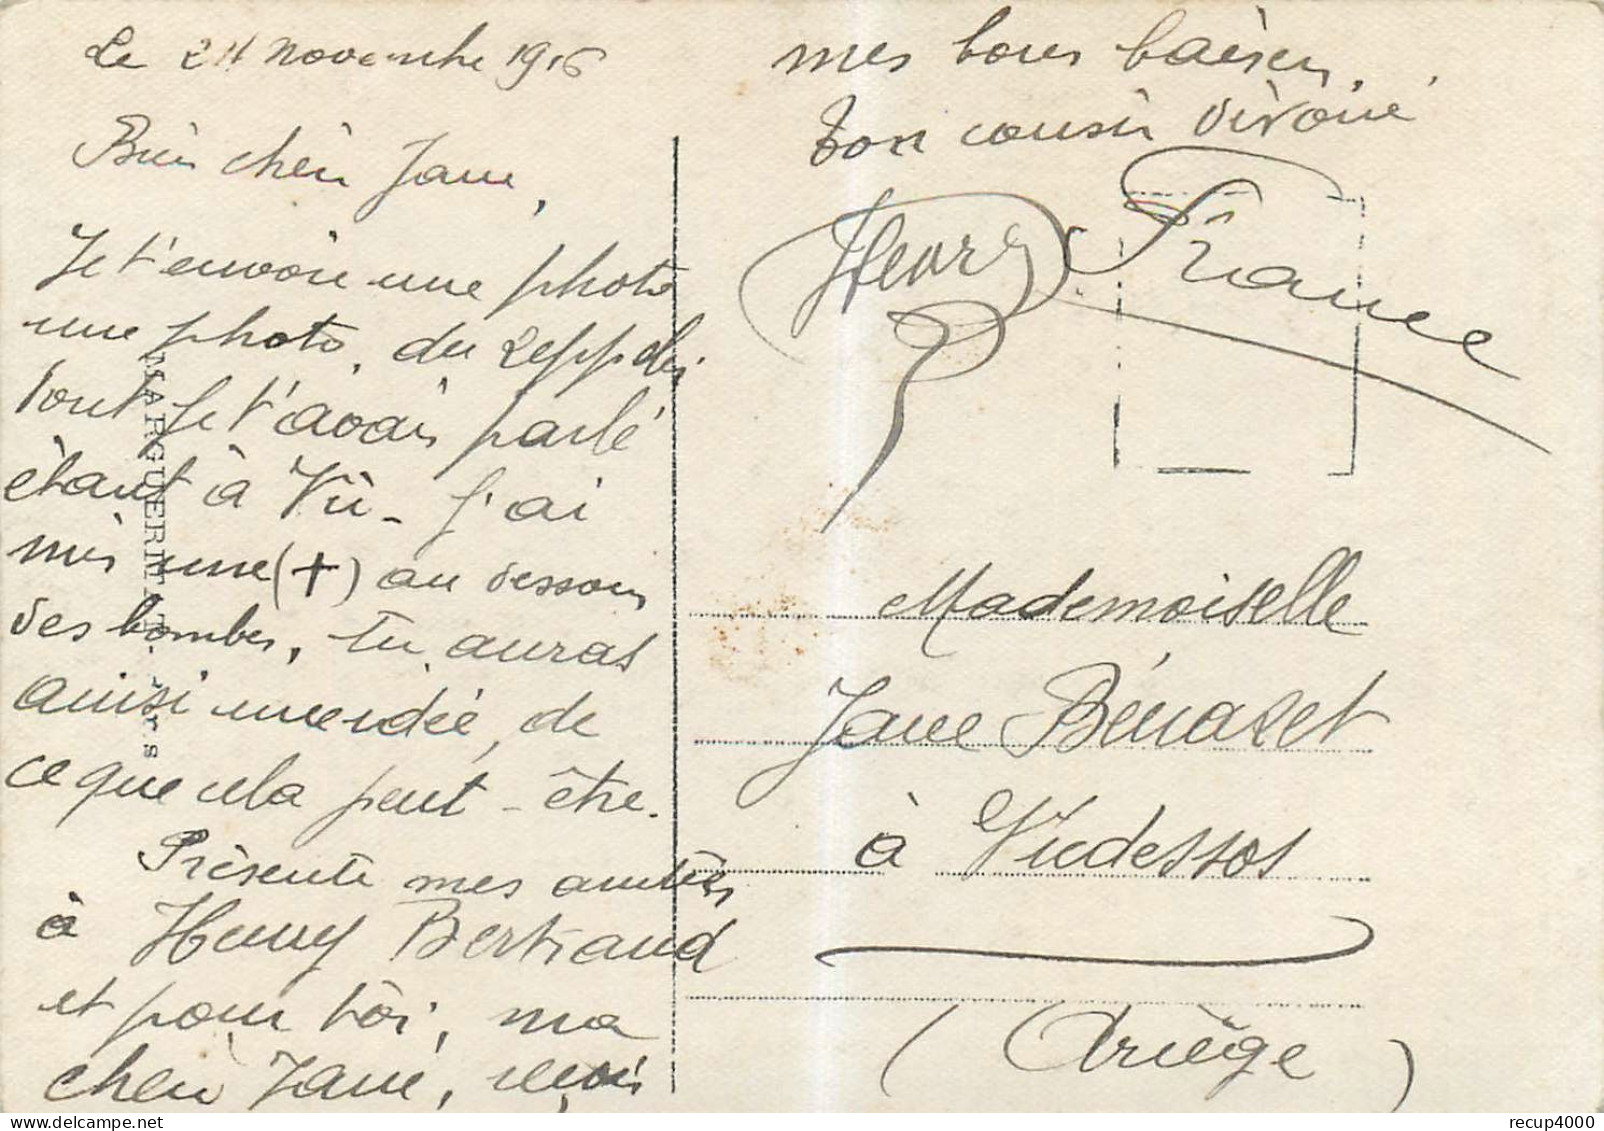 Le 24 Novembre 1916
Bien chère Jane,
Je t'envoie une photo
une photo, du zeppelin
dont je t'avais parlé
étant à Vic - J'ai
mis une (+) au dessous
des bombes, tu auras
ainsi une idée, de
ce que cela peut-être.
Présente mes amitiés
à Henry Bertrand
et pour toi, ma
chère Jane, reçois
mes bons baisers.
Ton cousin dévoué
Henry France
MARGUERITE
Mademoiselle
Jane Bénazet
à Vicdessos
(Ariège)
recup4000